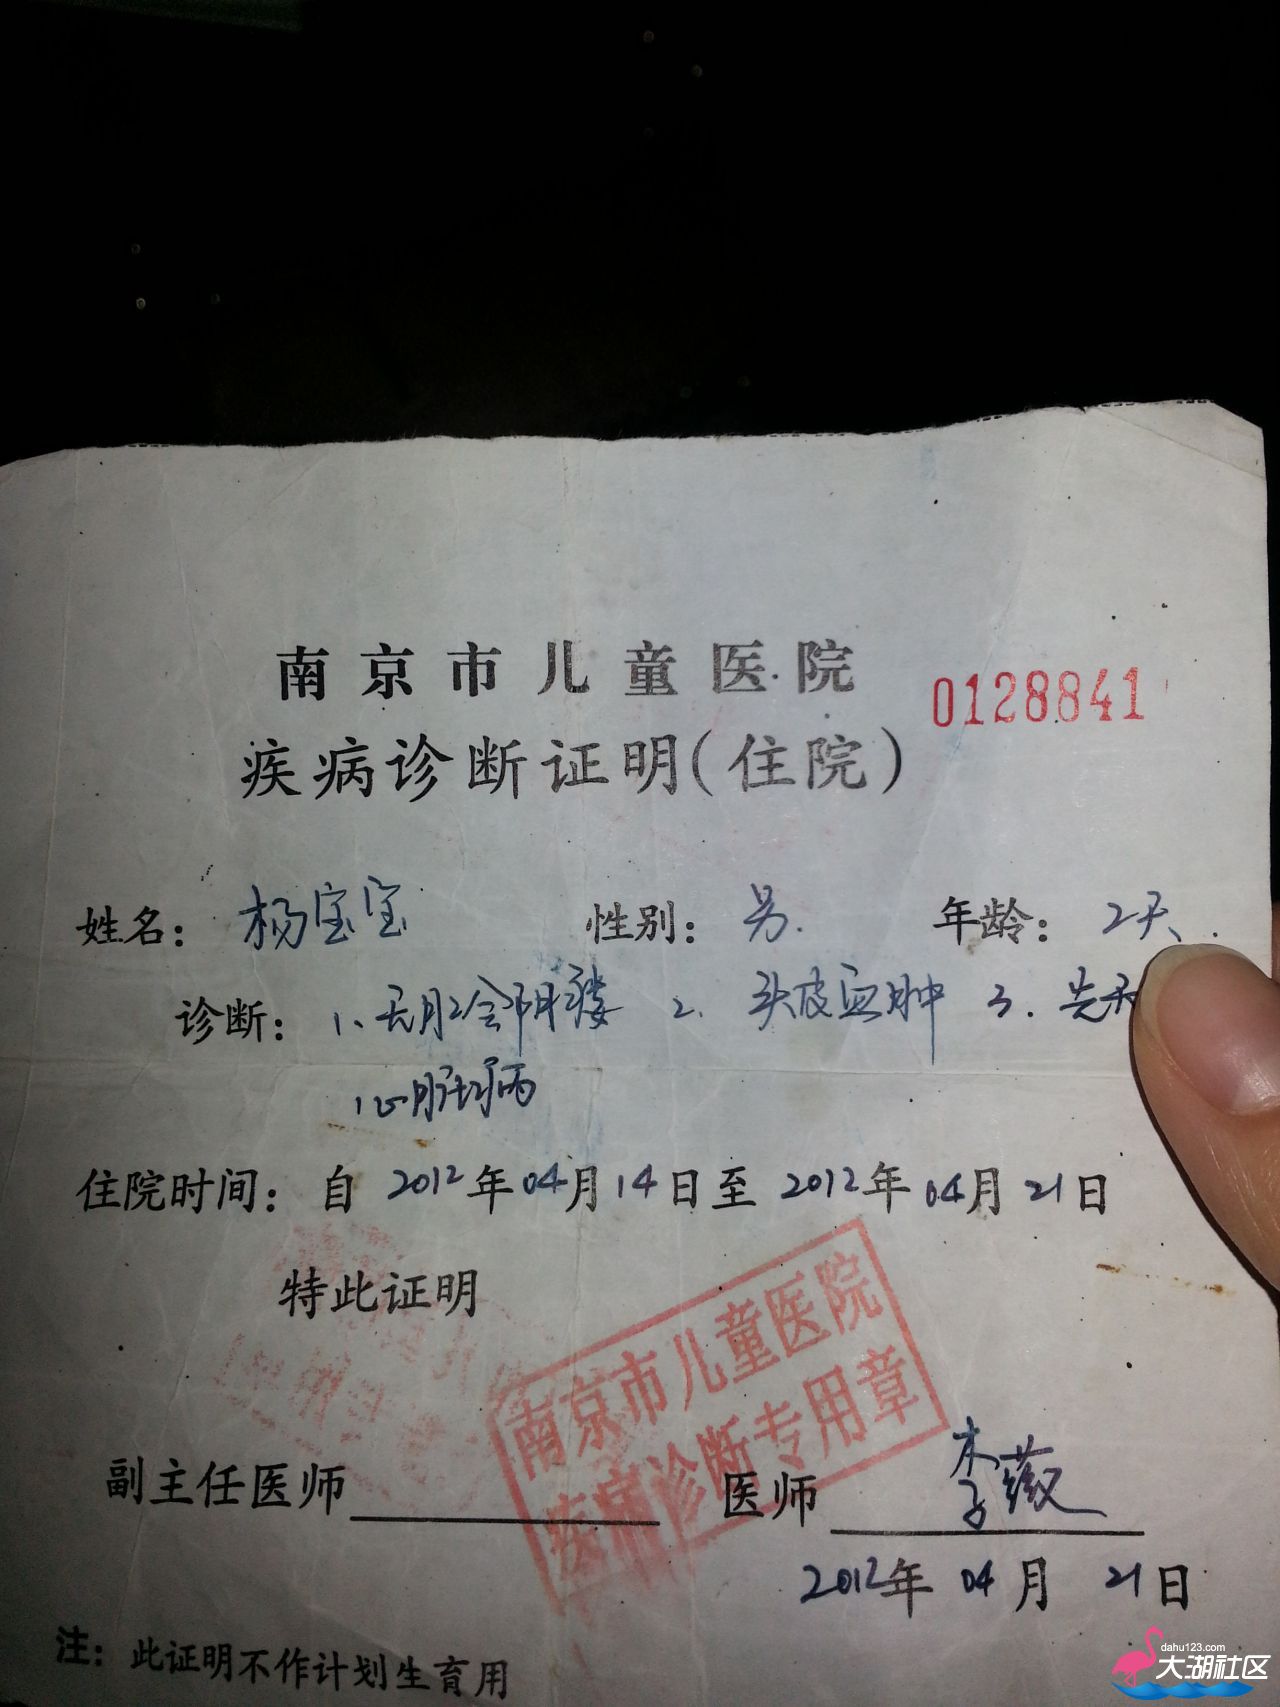 南京市儿童医院
0128841
疾病诊断证明(住院)
姓名: 杨宝宝 性别: 男. 年龄: 2天.
诊断: 1、无肛会阴瘘 2. 头皮血肿 3. 先天
心脏病
住院时间: 自 2012年04月14日至2012年04月21日
特此证明
南京市儿童医院
疾病诊断专用章
副主任医师 医师 李薇
2012年 04月 21日
注: 此证明不作计划生育用
dahu123.com
大湖社区